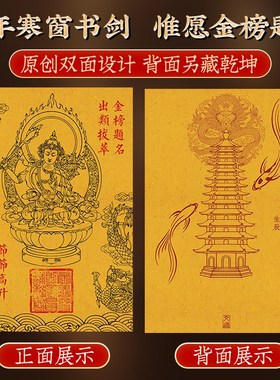 年寒窗书剑 惟愿金榜题
原创双面设计 背面另藏乾坤
金榜題名
出類拔萃
節節高升
正面展示
背面展示